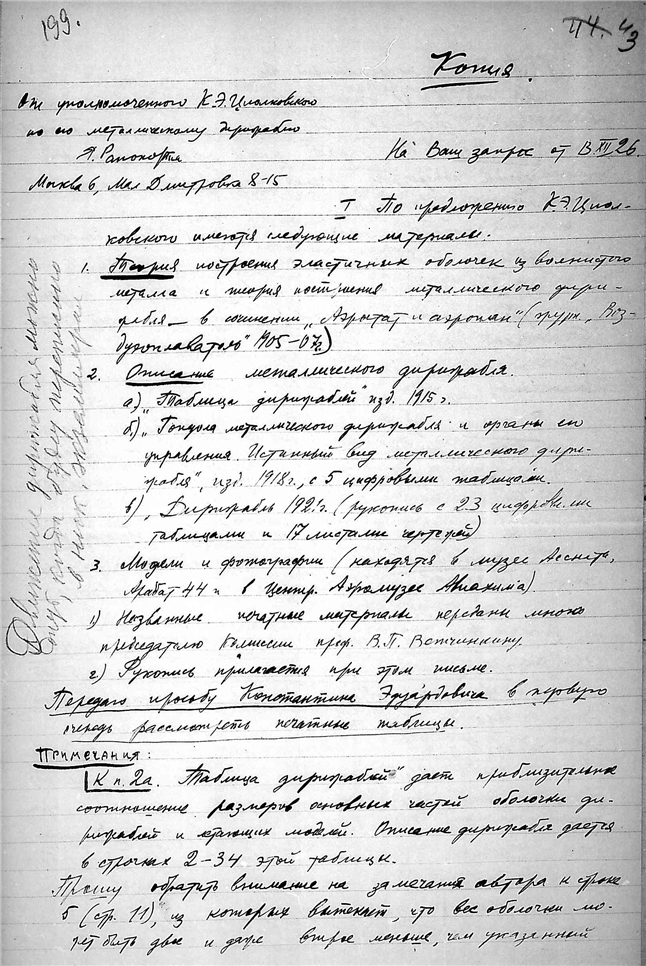 199.
44. 43
Копия.
От уполномоченного К.Э.Циолковского
по его металлическому дирижаблю
Я. Рапопорта
Москва 6, Мал Дмитровка 8-15
На Ваш запрос от 13 XII 26.
I По предложению К.Э.Циол-
ковского имеются следующие материалы.
1. Теория построения эластичных оболочек из волнистого
металла и теория построения металлического дири-
жабля – в сочинении „Аэростат и аэроплан" (журн. „Воз-
духоплаватель" 1905-07г.)
2. Описание металлического дирижабля.
а) „Таблица дирижаблей" изд. 1915 г.
б) „Гондола металлического дирижабля и органы его
управления. Истинный вид металлического дири-
жабля", изд. 1918г., с 5 цифровыми таблицами.
в) „Дирижабль 192 г. (рукопись с 23 цифровыми
таблицами и 17 листами чертежей)
3. Модели и фотографии (находятся в музее Ассната,
Арбат 44 и в Центр. Аэромузее Авиахима).
1) Названные печатные материалы переданы мною
председателю Комиссии проф. В.П. Ветчинкину.
2) Рукопись прилагается при этом письме.
Передаю просьбу Константина Эдуардовича в первую
очередь рассмотреть печатные таблицы.
ПРИМЕЧАНИЯ:
К п. 2а. „Таблица дирижаблей" дает приблизительно
соотношение размеров основных частей оболочки ди-
рижаблей и летающих моделей. Описание дирижабля дается
в строчках 2-34 этой таблицы.
Прошу обратить внимание на замечания автора к строке
5 (стр. 11), из которых вытекает, что вес оболочки мо-
жет быть двое и даже втрое меньше, чем указанный
дирижабля можно
когда будет переписано
экземплярах